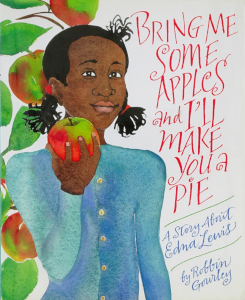 BRING ME
SOME
APPLES
and I'LL
MAKE
YOU a
PIE
A Story About
Edna Lewis
by Robbin
Gourley